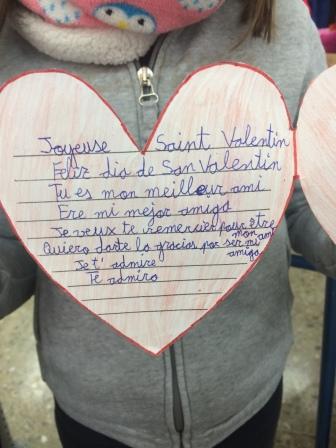 Joyeuse Saint Valentin
Feliz dia de San Valentin
Tu es mon meilleur ami
Ere mi mejor amiga
Je veux te remercier pour etre mon ami
Quiero darte la gracias por ser mi amiga
Je t'admire
Te admiro